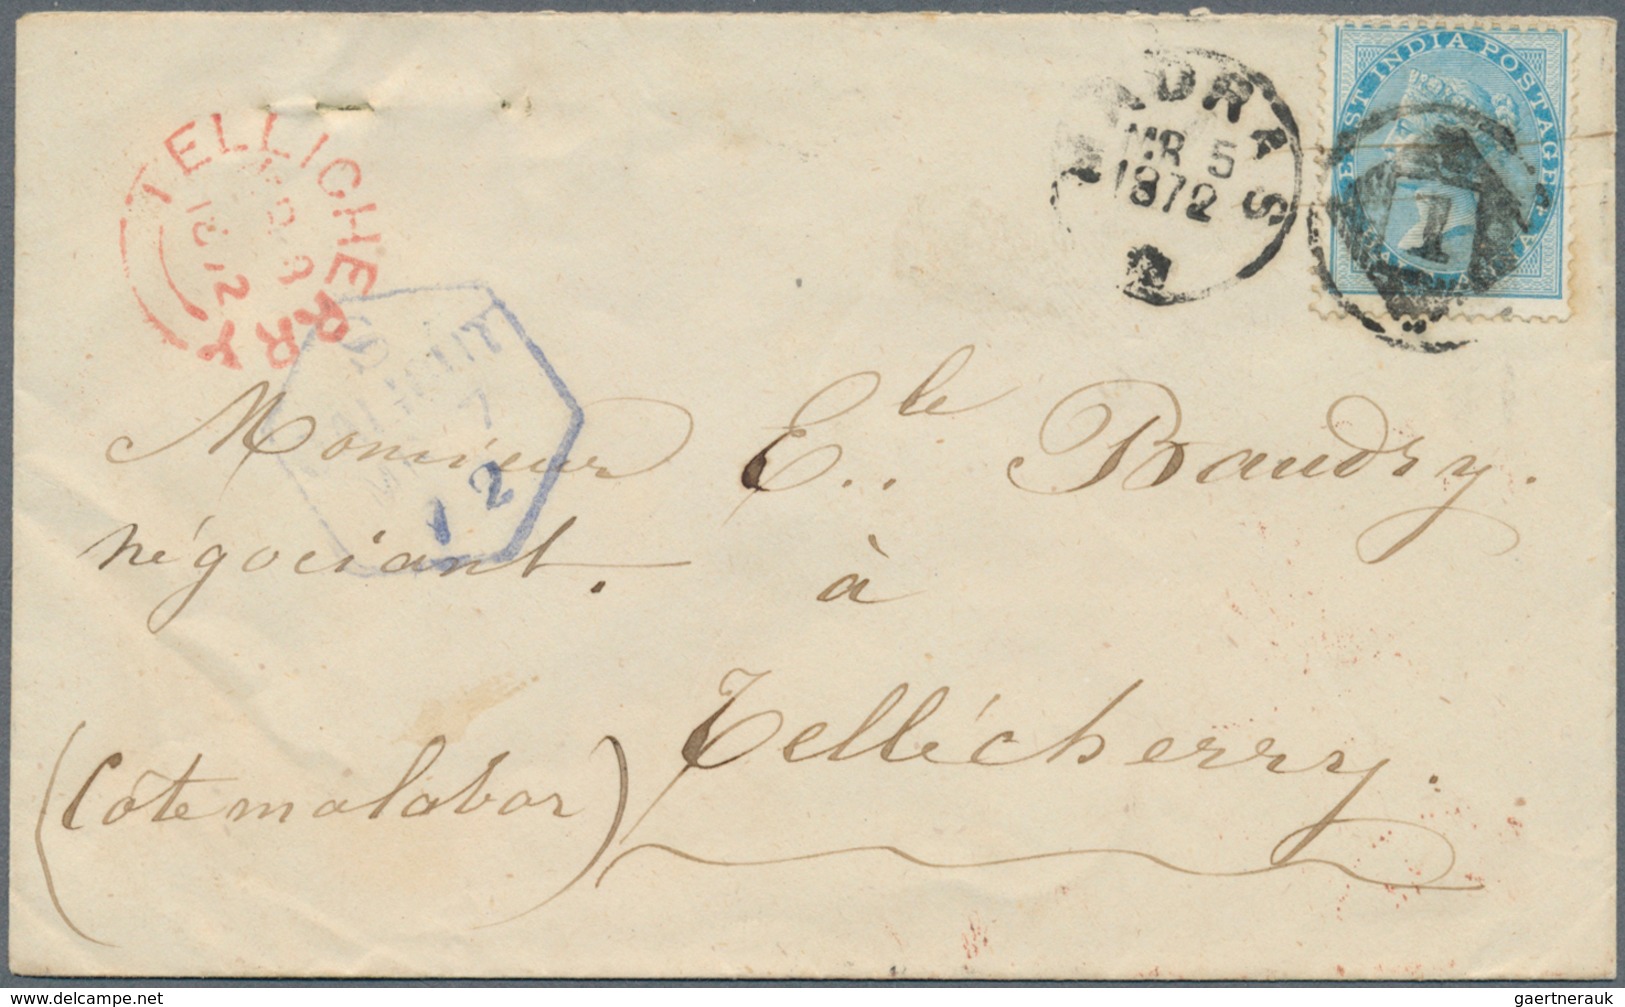 TELLICHERRY
18 72
MADRAS
MR 5
1872
EAST INDIA POSTAGE
1
7
12
Monsieur E.le Baudry.
négociant. à
Tellécherry.
(Côte malabar)
© www.delcampe.net
gaertnerauk